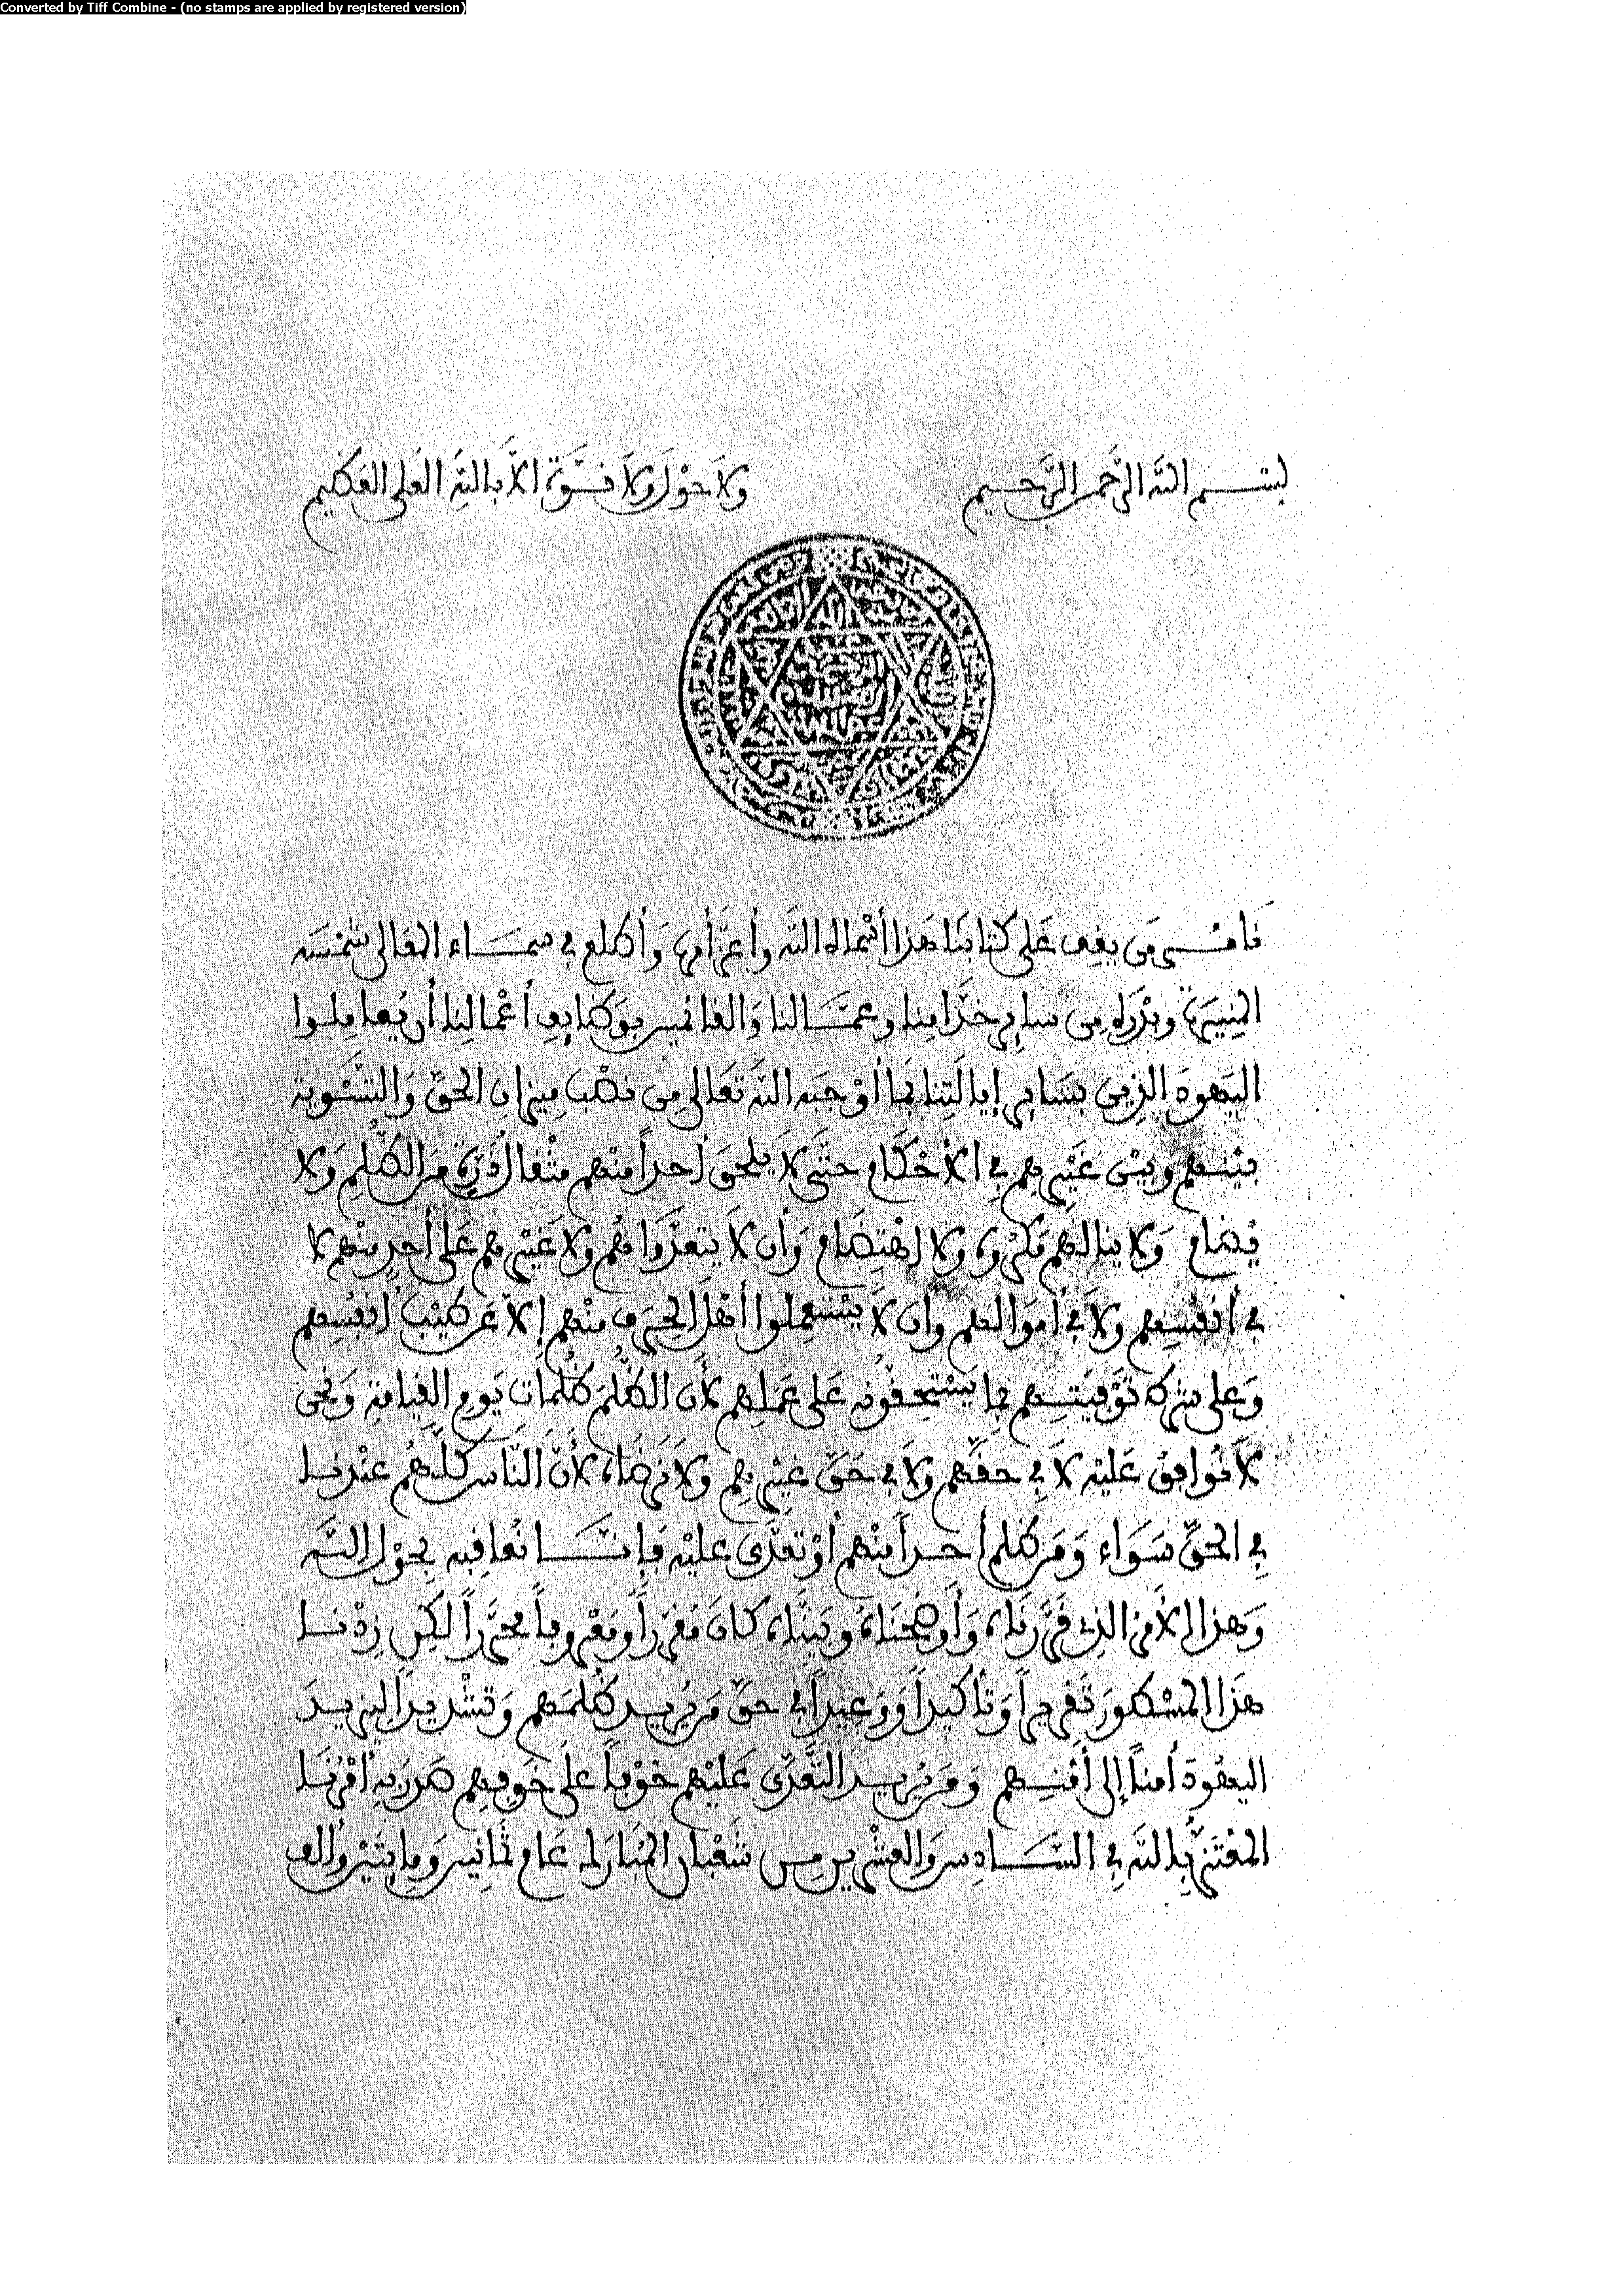 Converted by Tiff Combine - (no stamps are applied by registered version)
بسم الله الرحمن الرحيم ولا حول ولا قوة إلا بالله العلي العظيم
نامر من يقف على كتابنا هذا أسماه الله وأعز أمره وأطلع في سماء المعالي شمسه
المنيرة وبدره من سائر خدامنا وعمالنا والقائمين بوظائف أعمالنا أن يعاملوا
اليهود الذين بسائر إيالتنا بما أوجبه الله تعالى من نصب ميزان الحق والتسوية
بينهم وبين غيرهم في الأحكام حتى لا يلحق أحداً منهم مثقال ذرة من الظلم ولا
يضام ولا ينالهم مكروه ولا اهتضام وأن لا يتعدوا هم ولا غيرهم على أحد منهم لا
في أنفسهم ولا في أموالهم وأن لا يستعملوا أهل الحرف منهم إلا عن طيب أنفسهم
وعلى شرط توفيتهم بما يستحقونه على عملهم لأن الظلم ظلمات يوم القيامة ونحن
لا نوافق عليه لا في حقهم ولا في حق غيرهم ولا نرضاه لأن الناس كلهم عندنا
في الحق سواء ومن ظلم أحداً منهم أو تعدى عليه فإننا نعاقبه بحول الله
وهذا الأمر الذي قررناه وأوضحناه وبيناه كان مقرراً ومعروفاً محرراً لكن زدنا
هذا المسطور تقريراً وتأكيداً ووعيداً في حق من يريد ظلمهم وتشديداً ليزيد
اليهود أمناً إلى أمنهم ومن يريد التعدي عليهم خوفاً على خوفهم صدر به أمرنا
المعتز بالله في السادس والعشرين من شعبان المبارك عام ثمانين ومايتين وألف